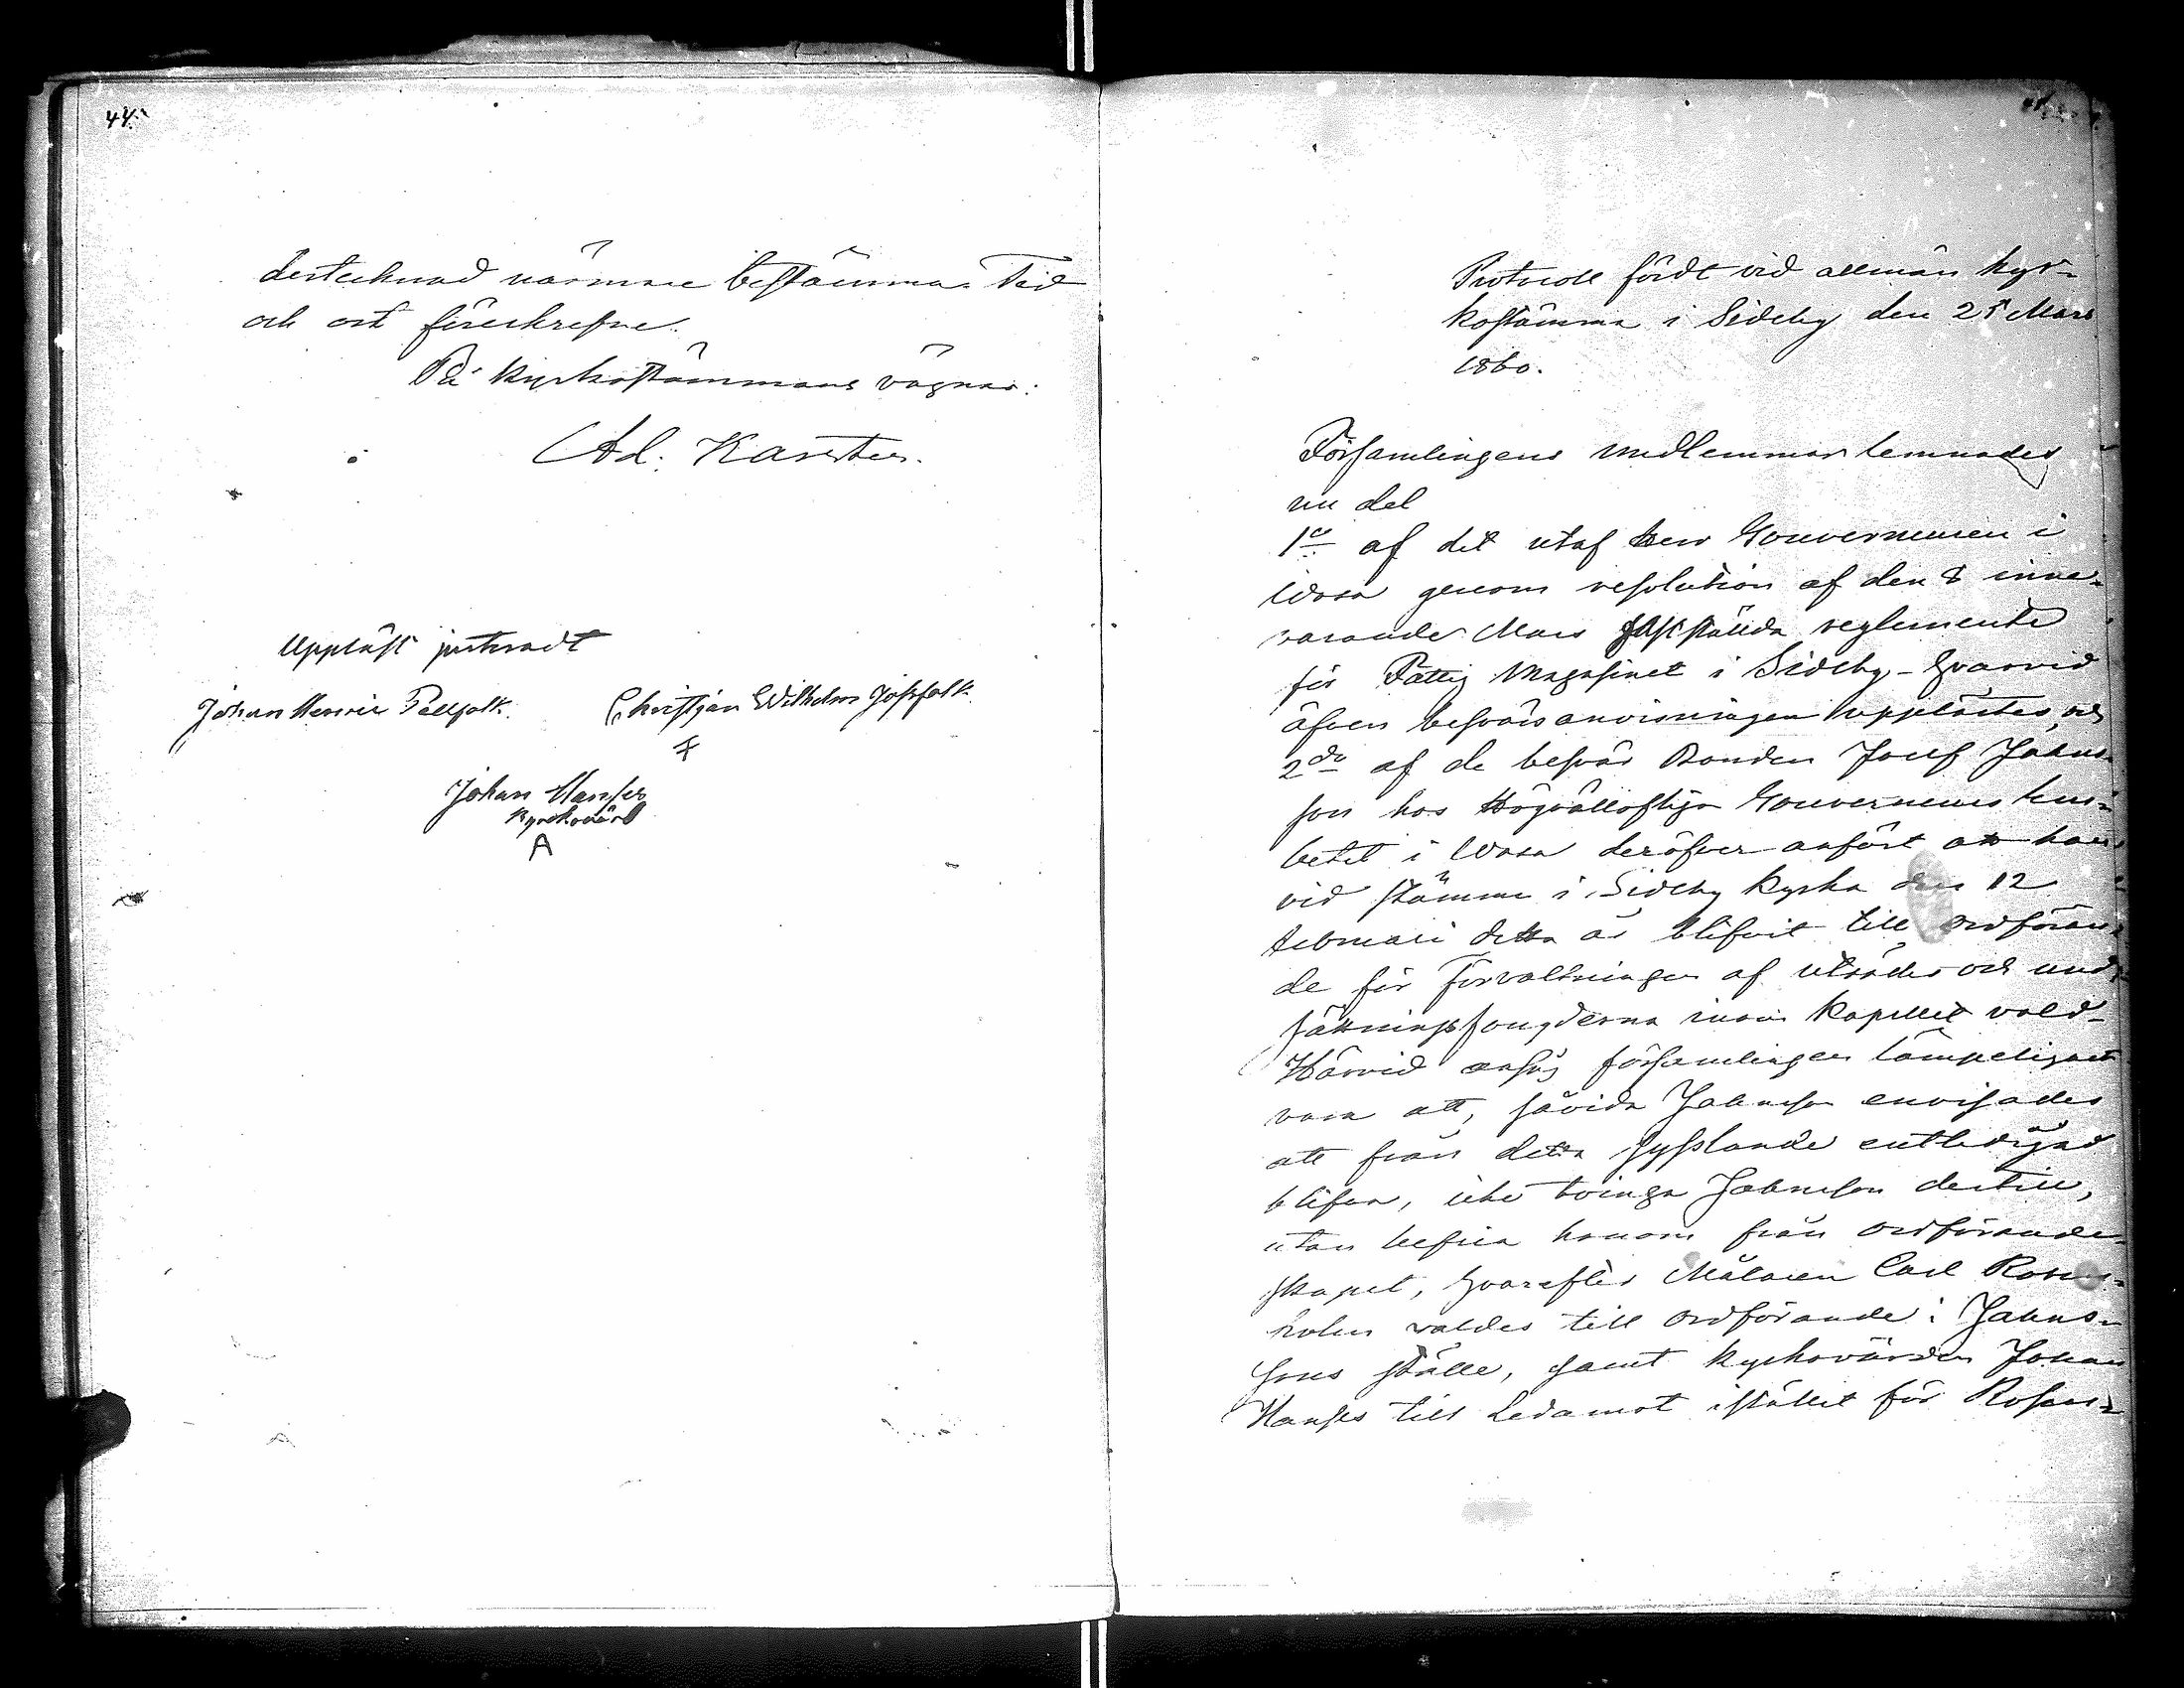 44.
dertecknad närmare bestämma. Tid
och ort föreskrefne.
På Kyrkostämmans vägnar:
Ad. Karsten.
Uppläst justeradt
Johan Henric Pellfolk. Christjan Wilhelm Jossfolk
Johan Hanses
Kyrkovärd
A
Protocoll fördt vid allmän kyr-
kostämma i Sideby den 25 Mars
1860.
Församlingens medlemmar lemnades
nu del
1o af det utaf Herr Gouverneuren i
Wasa genom resolution af den 8 inne-
varande Mars fastställda reglemente
för Fattig Magasinet i Sideby - hvarvid
äfven besvärsanvisningen upplästes, och
2do af de besvär Bonden Josef Jahns-
son hos Högvällofliga Gouvernements Kans-
liet i Wasa deröfver anfört att han
vid stämma i Sideby kyrka den 12
Februari detta år blifvit till ordföran-
de för Förvaltningen af utsädes och und-
sättningsfonderna inom Kapellet vald.
Härvid ansåg församlingen lämpeligast
vara att, såvida Jahnsson envisades
att från detta sysslande entledigad
blifva, icke tvinga Jahnsson dertill,
utan befria honom från ordförande-
skapet, hvarefter Målaren Carl Rosen-
holm valdes till ordförande i Jahns-
sons ställe, samt kyrkovärden Johan
Hanses till Ledamot istället för Rosen-